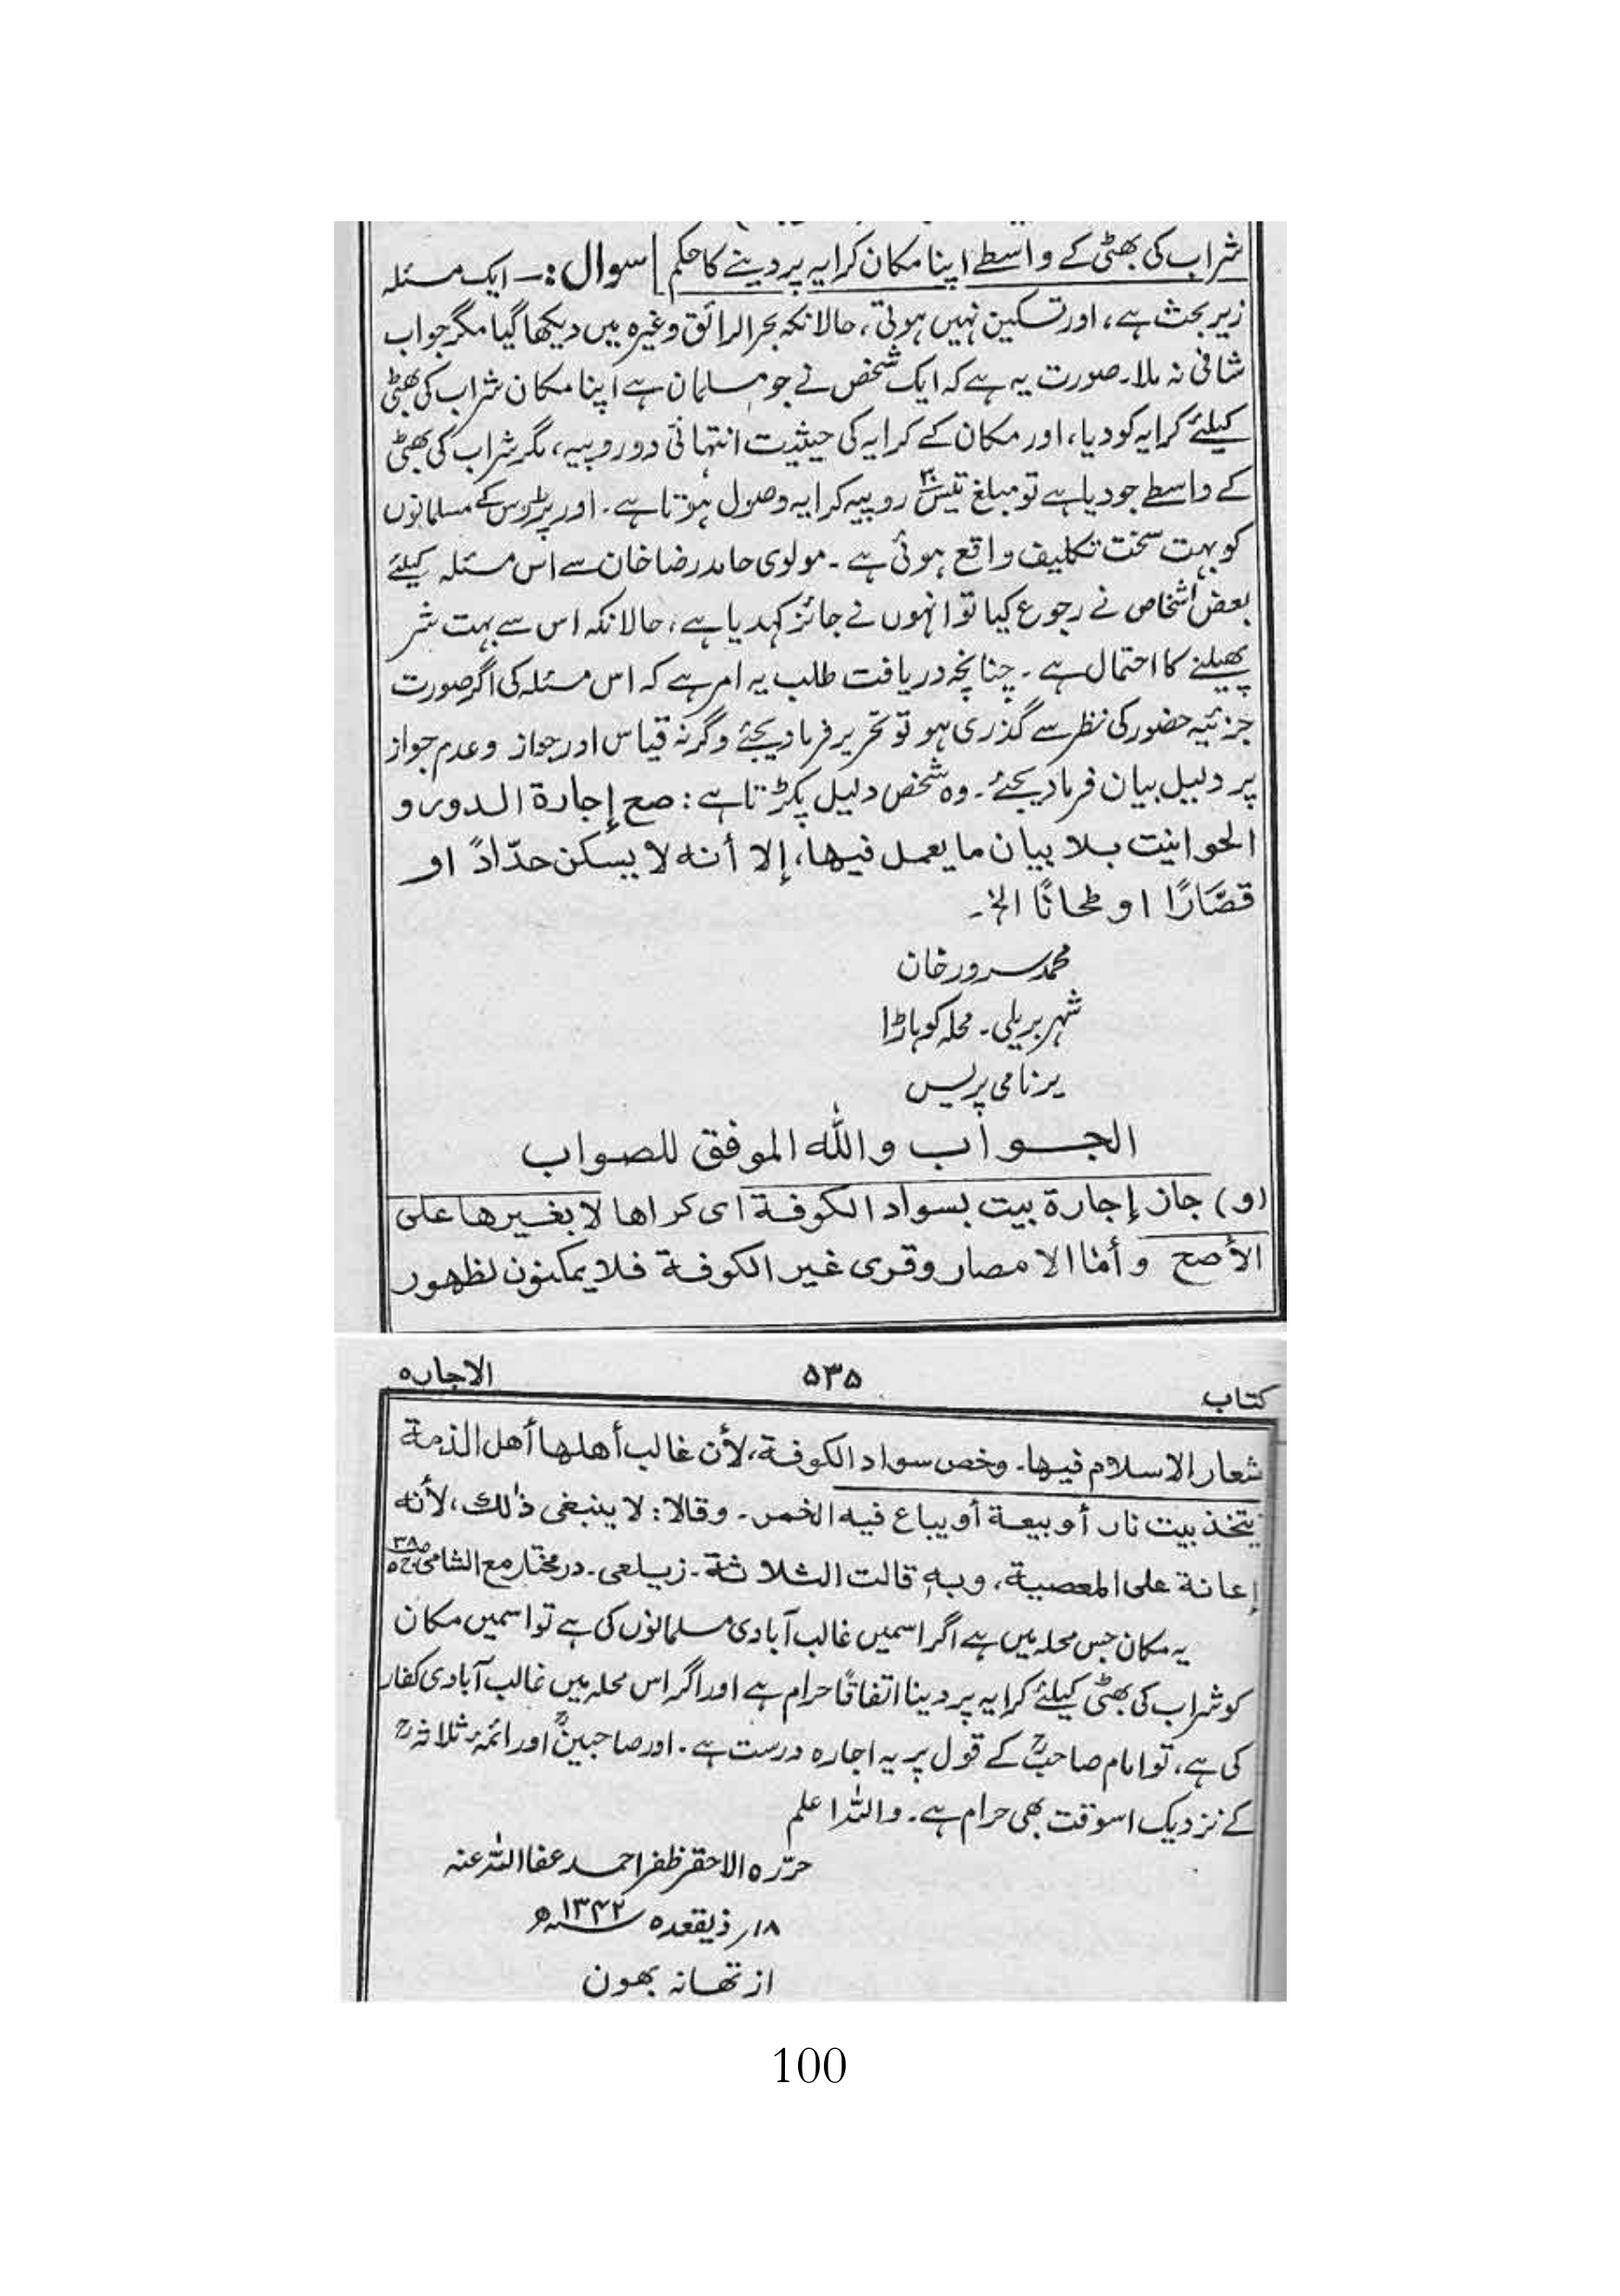 شراب کی بھٹی کے واسطے اپنا مکان کرایہ پر دینے کا حکم | سوال :- ایک مسئلہ
زیر بحث ہے، اور تسکین نہیں ہوتی، حالانکہ بحر الرائق وغیرہ میں دیکھا گیا مگر جواب
شافی نہ ملا۔ صورت یہ ہے کہ ایک شخص نے جو مسلمان ہے اپنا مکان شراب کی بھٹی
کیلئے کرایہ کو دیا، اور مکان کے کرایہ کی حیثیت انتہائی دو روپیہ، مگر شراب کی بھٹی
کے واسطے جو دیا ہے تو مبلغ تیس۳۰ روپیہ کرایہ وصول ہوتا ہے۔ اور پڑوس کے مسلمانوں
کو بہت سخت تکلیف واقع ہوئی ہے۔ مولوی حامد رضا خان سے اس مسئلہ کیلئے
بعض اشخاص نے رجوع کیا تو انہوں نے جائز کہدیا ہے، حالانکہ اس سے بہت شر
پھیلنے کا احتمال ہے۔ چنانچہ دریافت طلب یہ امر ہے کہ اس مسئلہ کی اگر صورت
جزئیہ حضور کی نظر سے گذری ہو تو تحریر فرما دیجئے وگرنہ قیاس اور جواز و عدم جواز
پر دلیل بیان فرما دیجئے۔ وہ شخص دلیل پکڑتا ہے: صح إجارة الدور و
الحوانیت بلا بیان ما یعمل فیہا، إلا أنه لا یسکن حدّادً او
قصَّارًا او طحانًا الخ۔
محمد سرور خان
شہر بریلی۔ محلہ کوہاڑا
یرنامی پریس
الجواب واللّٰه الموفق للصواب
(و) جاز إجارة بیت بسواد الکوفة ای کراها لا بغیرها علی
الأصح وأمّا الامصار وقری غیر الکوفة فلا یمکنون لظہور
کتاب ۵۳۵ الاجارہ
شعار الاسلام فیہا۔ وخص سواد الکوفة، لأن غالب أهلها أهل الذمة
یتخذ بیت نار أو بیعة أو یباع فیه الخمر۔ وقالا: لا ینبغی ذٰلك، لأنه
إعانة علی المعصیة، وبه قالت الثلاثة۔ زیلعی۔ درمختار مع الشامی ص۳۸۰ ج۵
یہ مکان جس محلہ میں ہے اگر اسمیں غالب آبادی مسلمانوں کی ہے تو اسمیں مکان
کو شراب کی بھٹی کیلئے کرایہ پر دینا اتفاقاً حرام ہے اور اگر اس محلہ میں غالب آبادی کفار
کی ہے، تو امام صاحبؒ کے قول پر یہ اجارہ درست ہے۔ اور صاحبینؒ اور ائمہ ثلاثہؒ
کے نزدیک اسوقت بھی حرام ہے۔ واللہ اعلم
حرّرہ الاحقر ظفر احمد عفا اللہ عنہ
۱۸ر ذیقعدہ ۱۳۴۲ھ
از تھانہ بھون
100